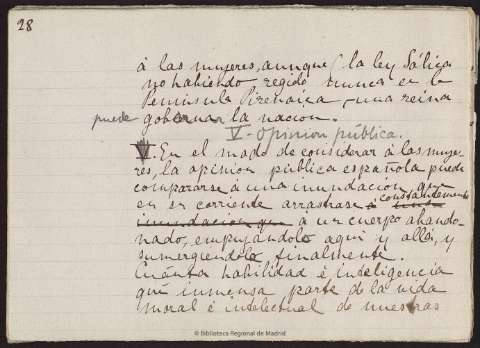 28
á las mujeres, aunque la ley Sálica
no habiendo regido nunca en la
Península Pirenaica, una reina
puede gobernar la nacion.
V - Opinion pública.
V. En el modo de considerar á las muje-
res, la opinion pública española puede
compararse á una inundacion, que
en su corriente arrastrase constantemente
inundacion que á un cuerpo abando-
nado, empujándolo aquí y allá, y
sumergiéndolo finalmente.
Cuánta habilidad é inteligencia
qué inmensa parte de la vida
moral é intelectual de nuestras
© Biblioteca Regional de Madrid